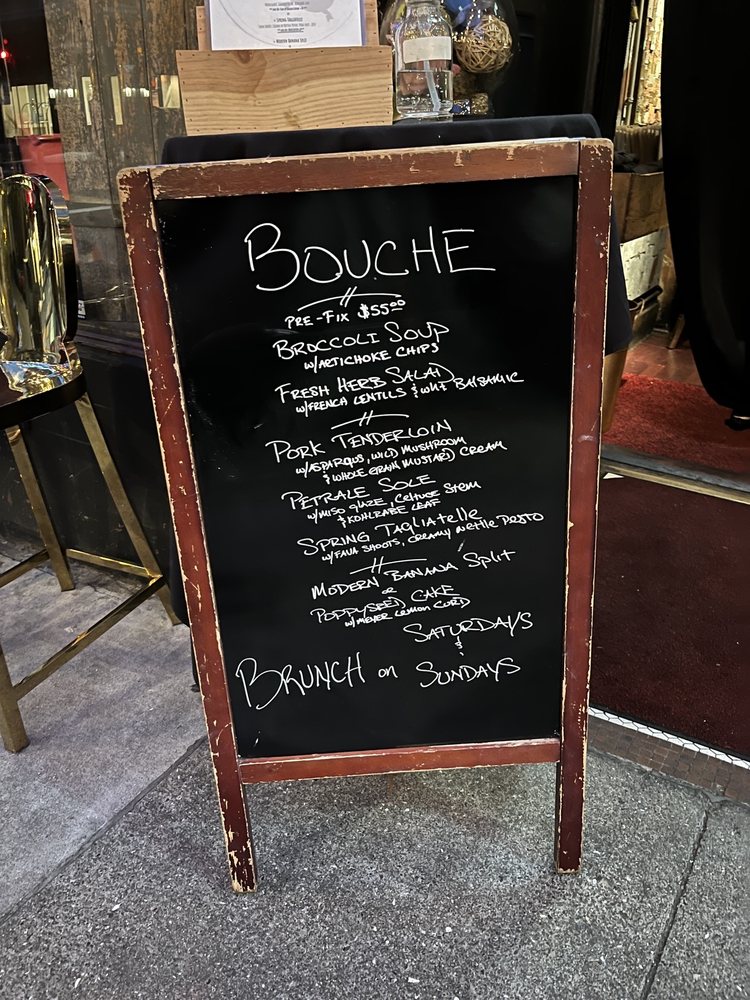 BOUCHE
PRE-FIX $55⁰⁰
BROCCOLI SOUP
w/ARTICHOKE CHIPS
FRESH HERB SALAD
w/FRENCH LENTILS & WHT BALSAMIC
PORK TENDERLOIN
w/ASPARGUS, WILD MUSHROOM
& WHOLE GRAIN MUSTARD CREAM
PETRALE SOLE
w/MISO GLAZE, CELTUCE STEM
& KOHLRABE LEAF
SPRING TAGLIATELLE
w/FAVA SHOOTS, CREAMY NETTLE PESTO
MODERN BANANA SPLIT
or
POPPYSEED CAKE
w/MEYER LEMON CURD
SATURDAYS
&
BRUNCH on SUNDAYS